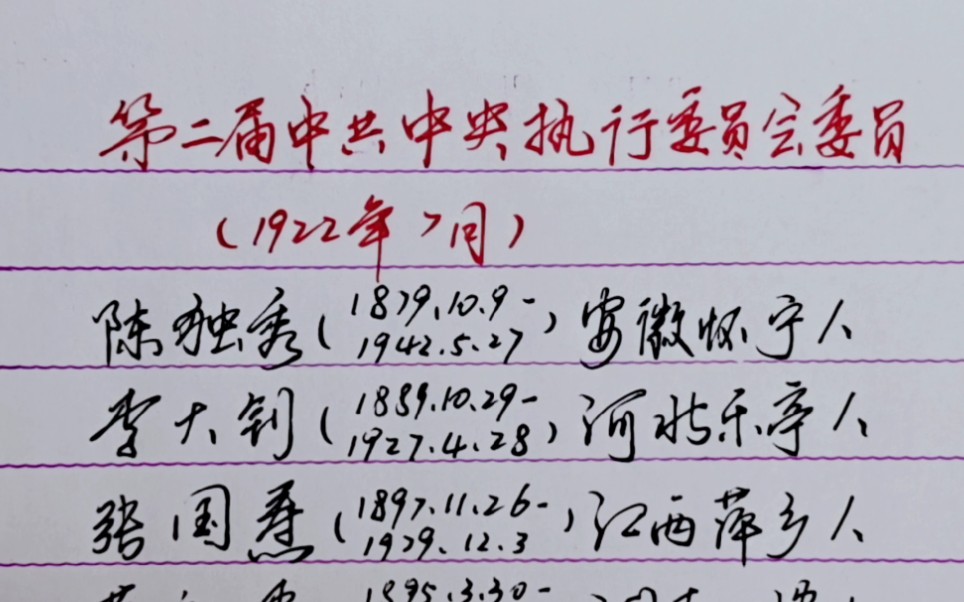 第二届中共中央执行委员会委员
(1922年7月)
陈独秀(1879.10.9-1942.5.27)安徽怀宁人
李大钊(1889.10.29-1927.4.28)河北乐亭人
张国焘(1897.11.26-1979.12.3)江西萍乡人
1895.3.30-